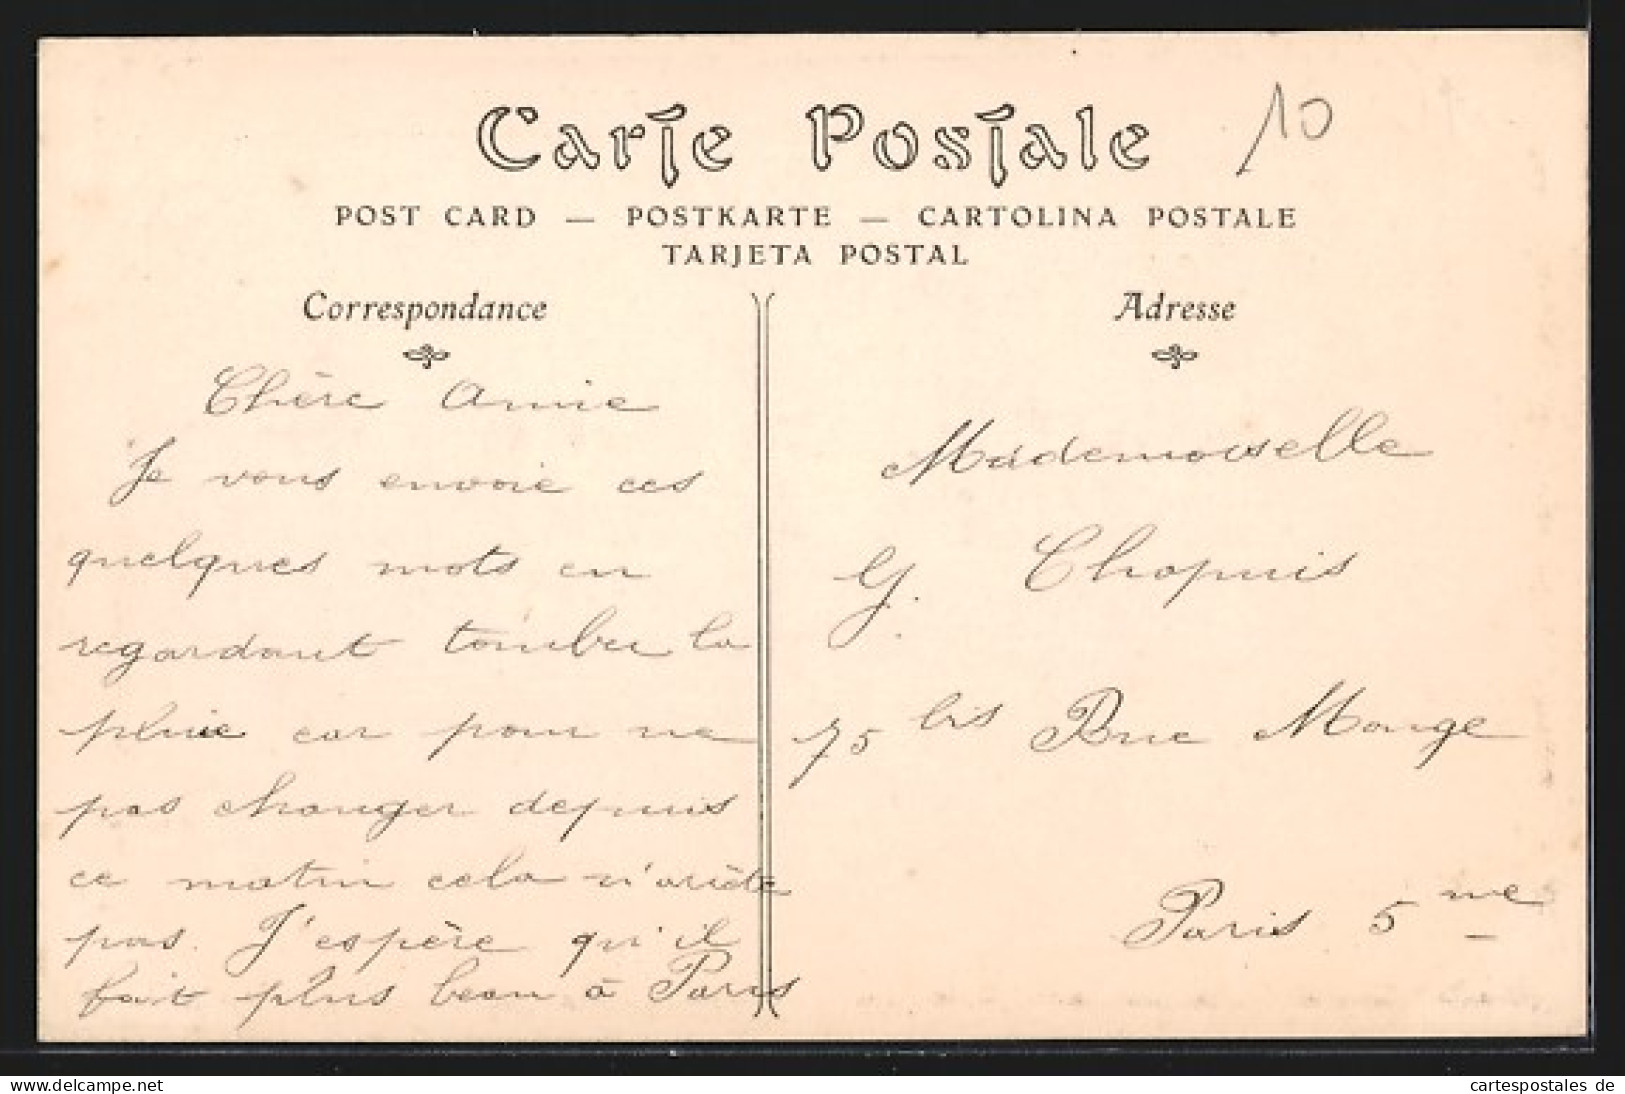 Carte Postale
10
POST CARD — POSTKARTE — CARTOLINA POSTALE
TARJETA POSTAL
Correspondance
Chère Amie
Je vous envoie ces
quelques mots en
regardant tomber la
pluie car pour ne
pas changer depuis
ce matin cela n'arrête
pas. J'espère qu'il
fait plus beau à Paris
Adresse
Mademoiselle
G. Chapuis
75 bis Rue Monge
Paris 5me
www.delcampe.net
cartespostales de